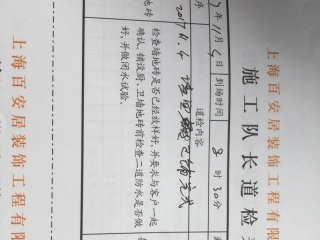 上海百安居装饰工程有限
施工队长道检
年11月4日 到场时间 8时30分
道检内容
序
2017.11.4
完成
地砖
检查墙地砖是否已经放样好,并要求与客户一起
确认、铺设厨、卫墙地砖前检查二道防水是否做
好,并做闭水试验。
上海百安居装饰工程有限